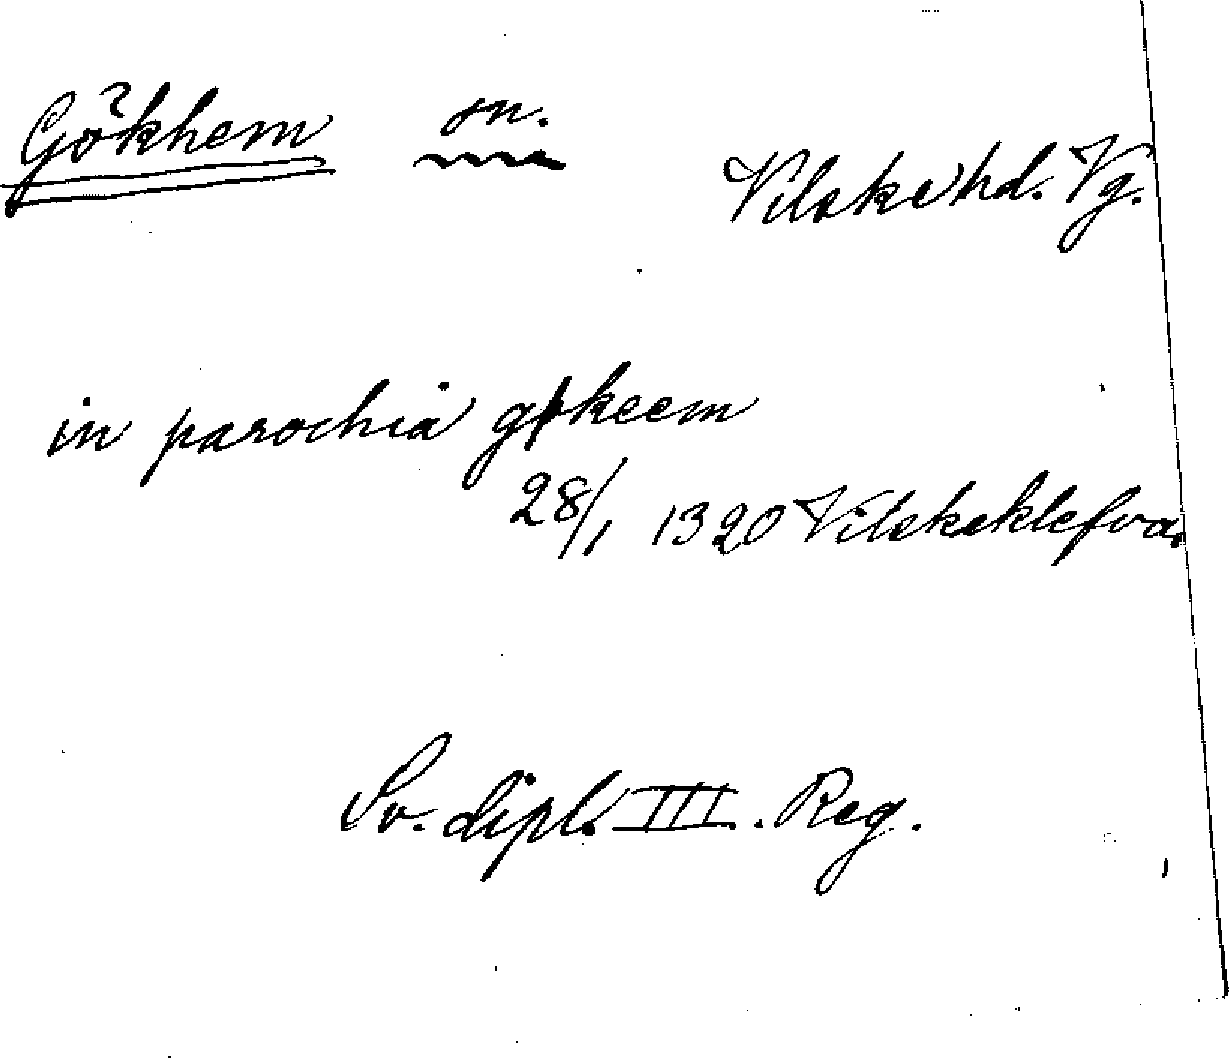 Gökhem sn. Vilske hd. Vg.
in parochia gøkeem
28/1 1320 Vilskeklefva.
Sv. dipl. III. Reg.